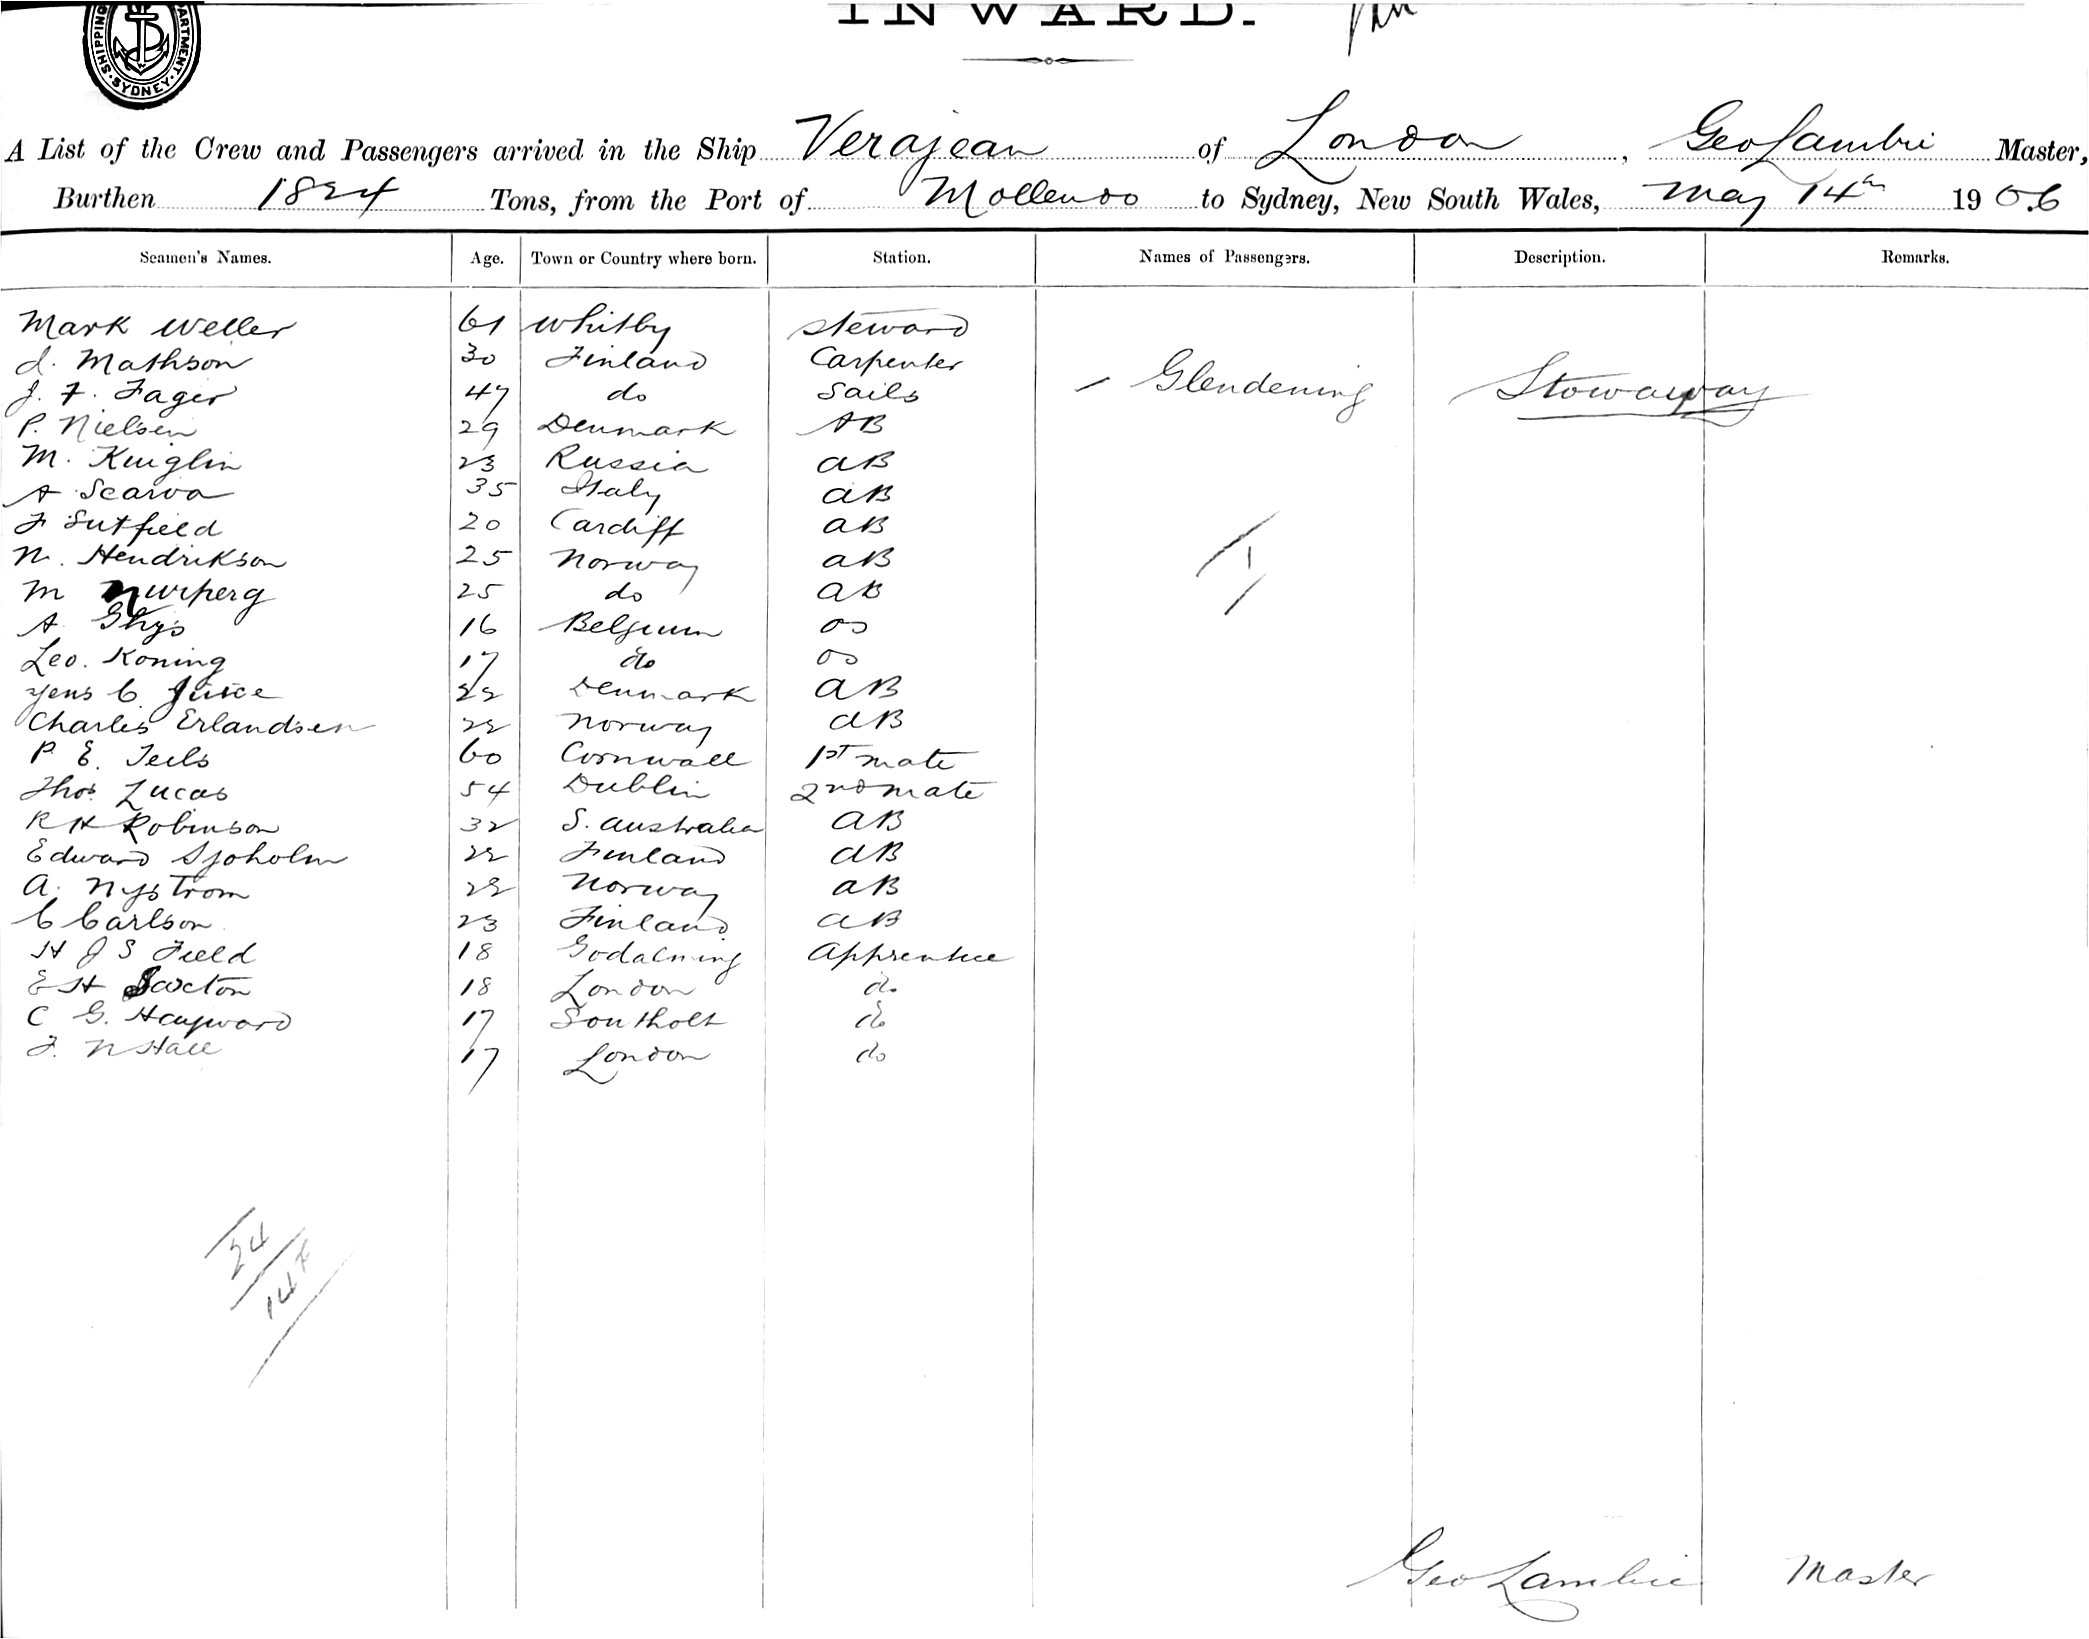 INWARD.
SHIPPING DEPARTMENT SYDNEY
A List of the Crew and Passengers arrived in the Ship Verajean of London, Geo Lambie Master,
Burthen 1824 Tons, from the Port of Mollendo to Sydney, New South Wales, May 14th 1906
Seamen's Names. Age. Town or Country where born. Station. Names of Passengers. Description. Remarks.
Mark Weller 61 Whitby Steward
J. Mathson 30 Finland Carpenter
Glendening Stowaway
J. F. Fager 47 do Sails
P. Nielsen 29 Denmark AB
M. 23 Russia AB
A Scarva 35 Italy AB
F Sutfield 20 Cardiff AB
N. Hendrikson 25 Norway AB
1
M Nurperg 25 do AB
A. Ghys 16 Belgium OS
Leo. Koning 17 do OS
Yens C. Juice 22 Denmark AB
Charles Erlandsen 22 Norway AB
P. E. Teels 60 Cornwall 1st mate
Thos. Lucas 54 Dublin 2nd mate
R H Robinson 32 S. Australia AB
Edward Sjoholm 22 Finland AB
A. Nystrom 22 Norway AB
C Carlson 23 Finland AB
H J S Field 18 Godalming Apprentice
E H Saxton 18 London do
C G. Hayward 17 Southolt do
F. N Hall 17 London do
24
Geo Lambie Master